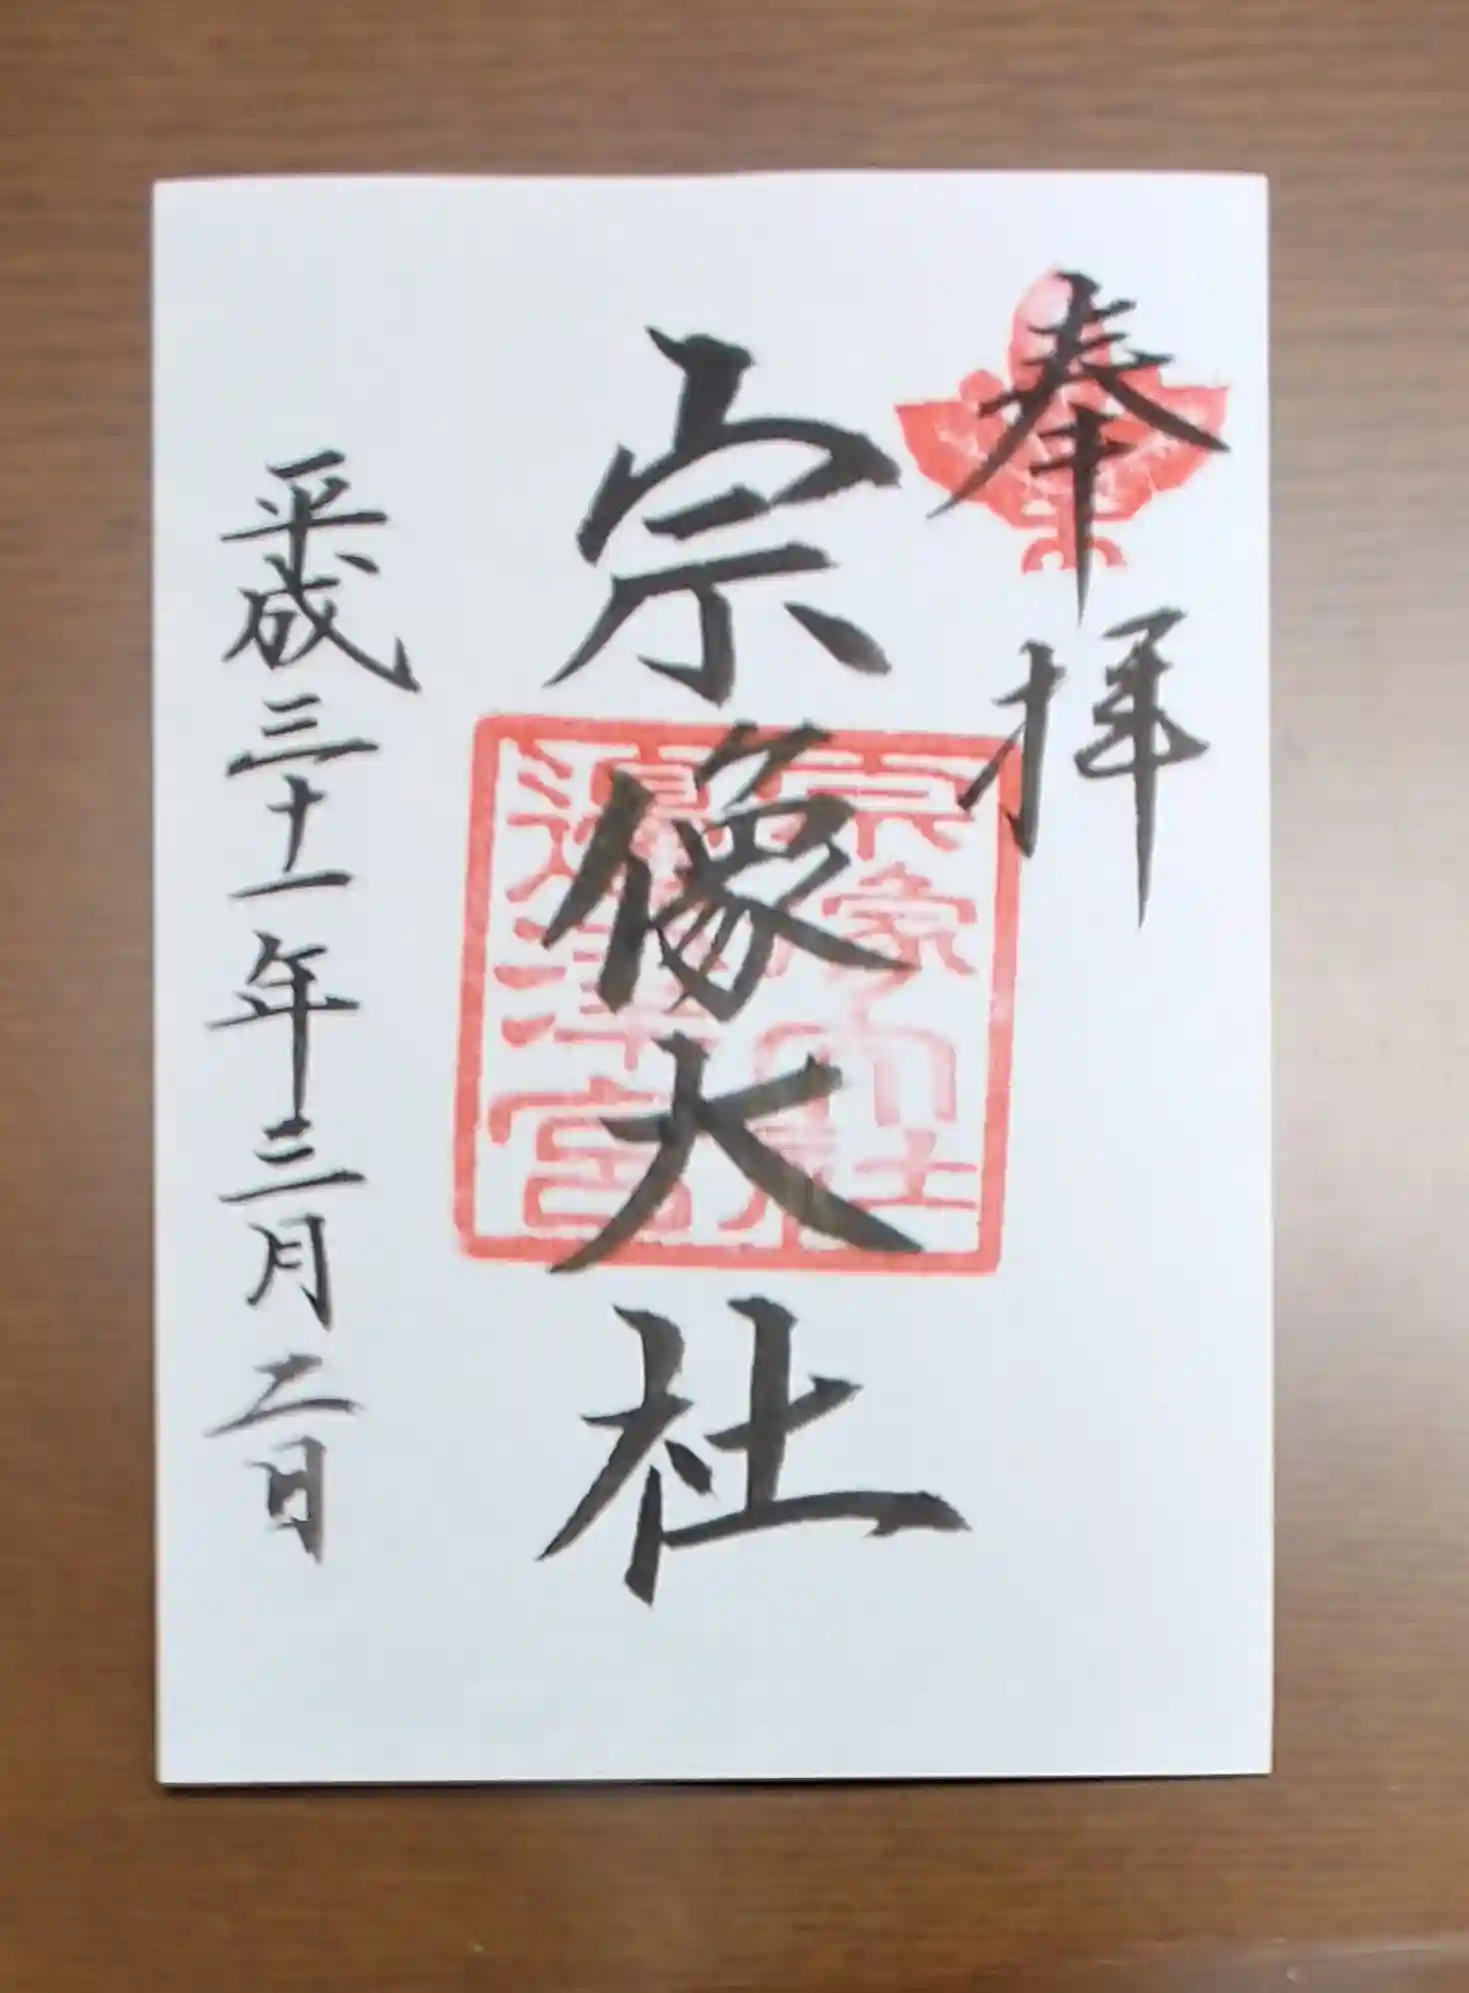 奉拝
宗像大社
宗像大社
邊津宮
平成三十一年三月二日